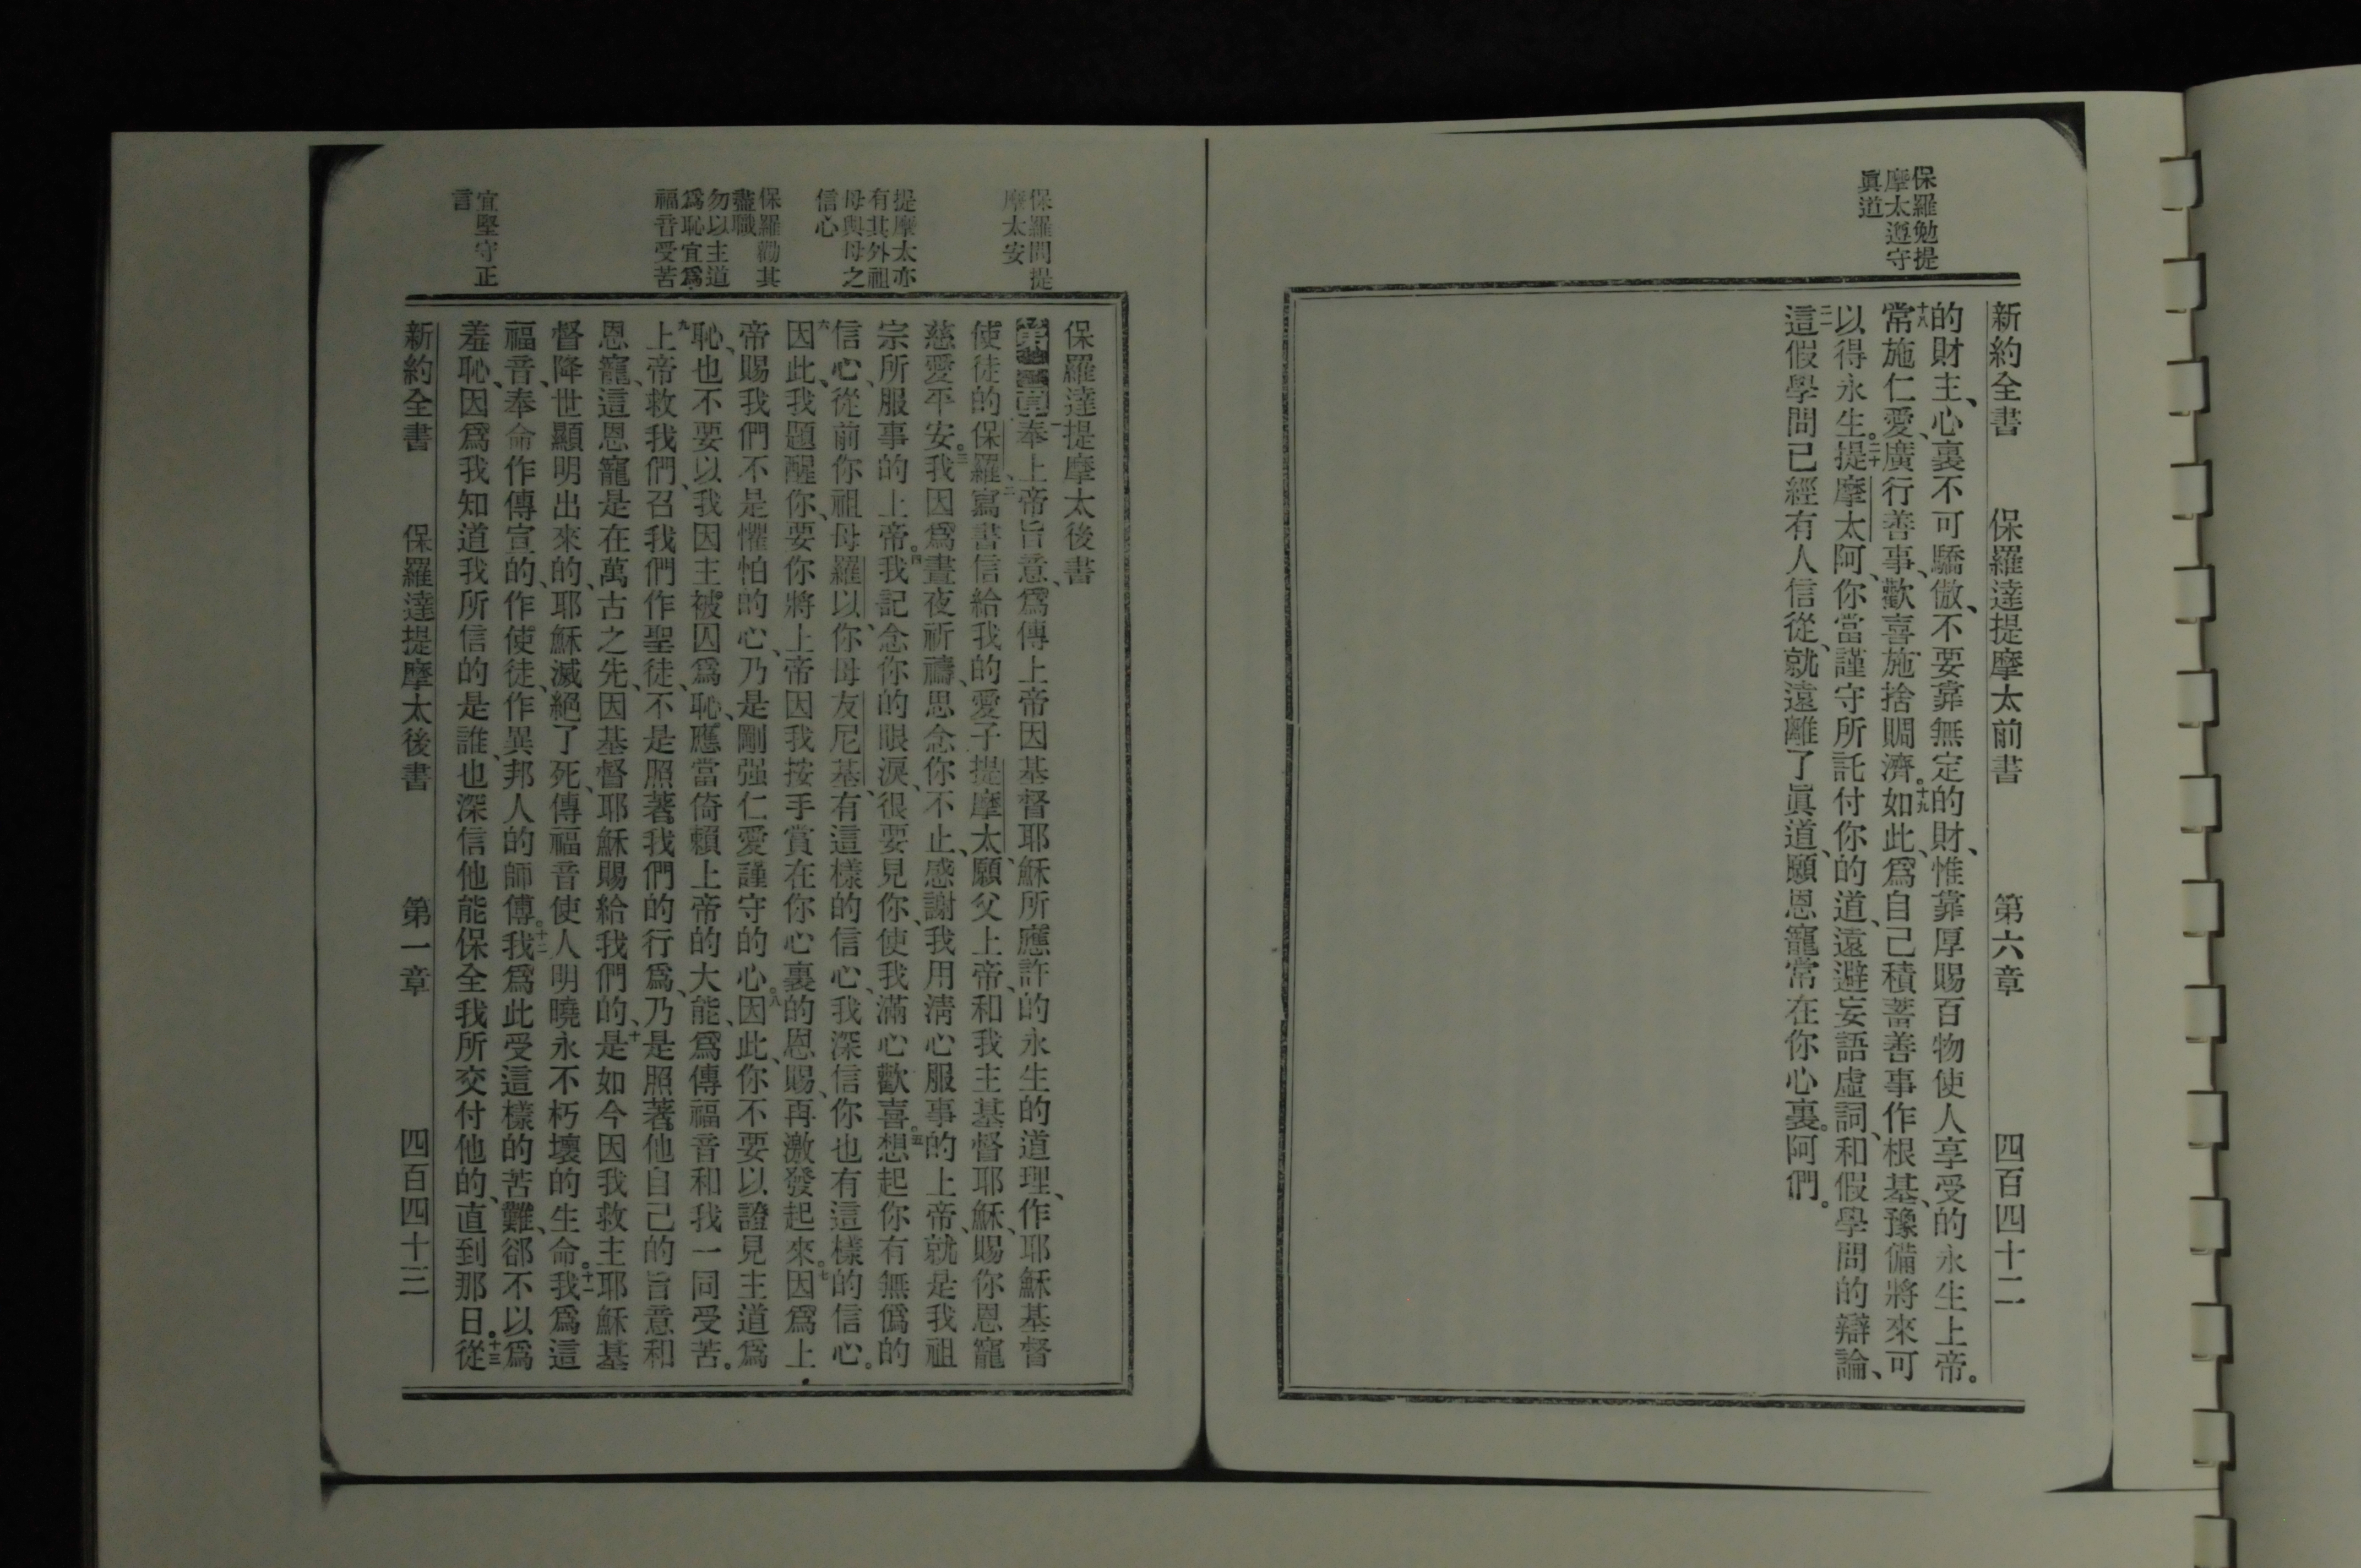 保羅勉提
摩太遵守
眞道
新約全書 保羅達提摩太前書 第六章 四百四十二
的財主、心裏不可驕傲、不要靠無定的財、惟靠厚賜百物使人享受的永生上帝。
十八常施仁愛、廣行善事、歡喜施捨賙濟。十九如此、爲自己積蓄善事作根基、豫備將來可
以得永生。二十提摩太阿、你當謹守所託付你的道、遠避妄語虛詞、和假學問的辯論、
二一這假學問已經有人信從、就遠離了眞道、願恩寵常在你心裏。阿們。
保羅問提
摩太安
提摩太亦
有其外祖
母與母之
信心
保羅勸其
盡職
勿以主道
爲恥宜爲
福音受苦
宜堅守正
言
保羅達提摩太後書
第一章一奉上帝旨意、爲傳上帝因基督耶穌所應許的永生的道理、作耶穌基督
使徒的保羅、二寫書信給我的愛子提摩太、願父上帝、和我主基督耶穌、賜你恩寵
慈愛平安。三我因爲晝夜祈禱、思念你不止、感謝我用淸心服事的上帝、就是我祖
宗所服事的上帝。四我記念你的眼淚、很要見你、使我滿心歡喜。五想起你有無僞的
信心、從前你祖母羅以、你母友尼基、有這樣的信心、我深信你也有這樣的信心。
六因此、我題醒你、要你將上帝因我按手賞在你心裏的恩賜、再激發起來。七因爲上
帝賜我們不是懼怕的心、乃是剛强仁愛謹守的心。八因此、你不要以證見主道爲
恥、也不要以我因主被囚爲恥、應當倚賴上帝的大能、爲傳福音和我一同受苦。
九上帝救我們、召我們作聖徒、不是照著我們的行爲、乃是照著他自己的旨意和
恩寵、這恩寵是在萬古之先、因基督耶穌賜給我們的、十是如今因我救主耶穌基
督降世顯明出來的、耶穌滅絕了死、傳福音使人明曉永不朽壞的生命。十一我爲這
福音、奉命作傳宣的、作使徒、作異邦人的師傅。十二我爲此受這樣的苦難、郤不以爲
羞恥、因爲我知道我所信的是誰、也深信他能保全我所交付他的、直到那日。十三從
新約全書 保羅達提摩太後書 第一章 四百四十三